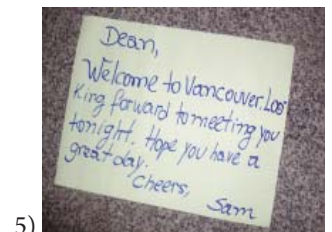 Dean,
Welcome to Vancouver. Loo
King forward to meeting you
tonight. Hope you have a
great day.
Cheers,
Sam
5)